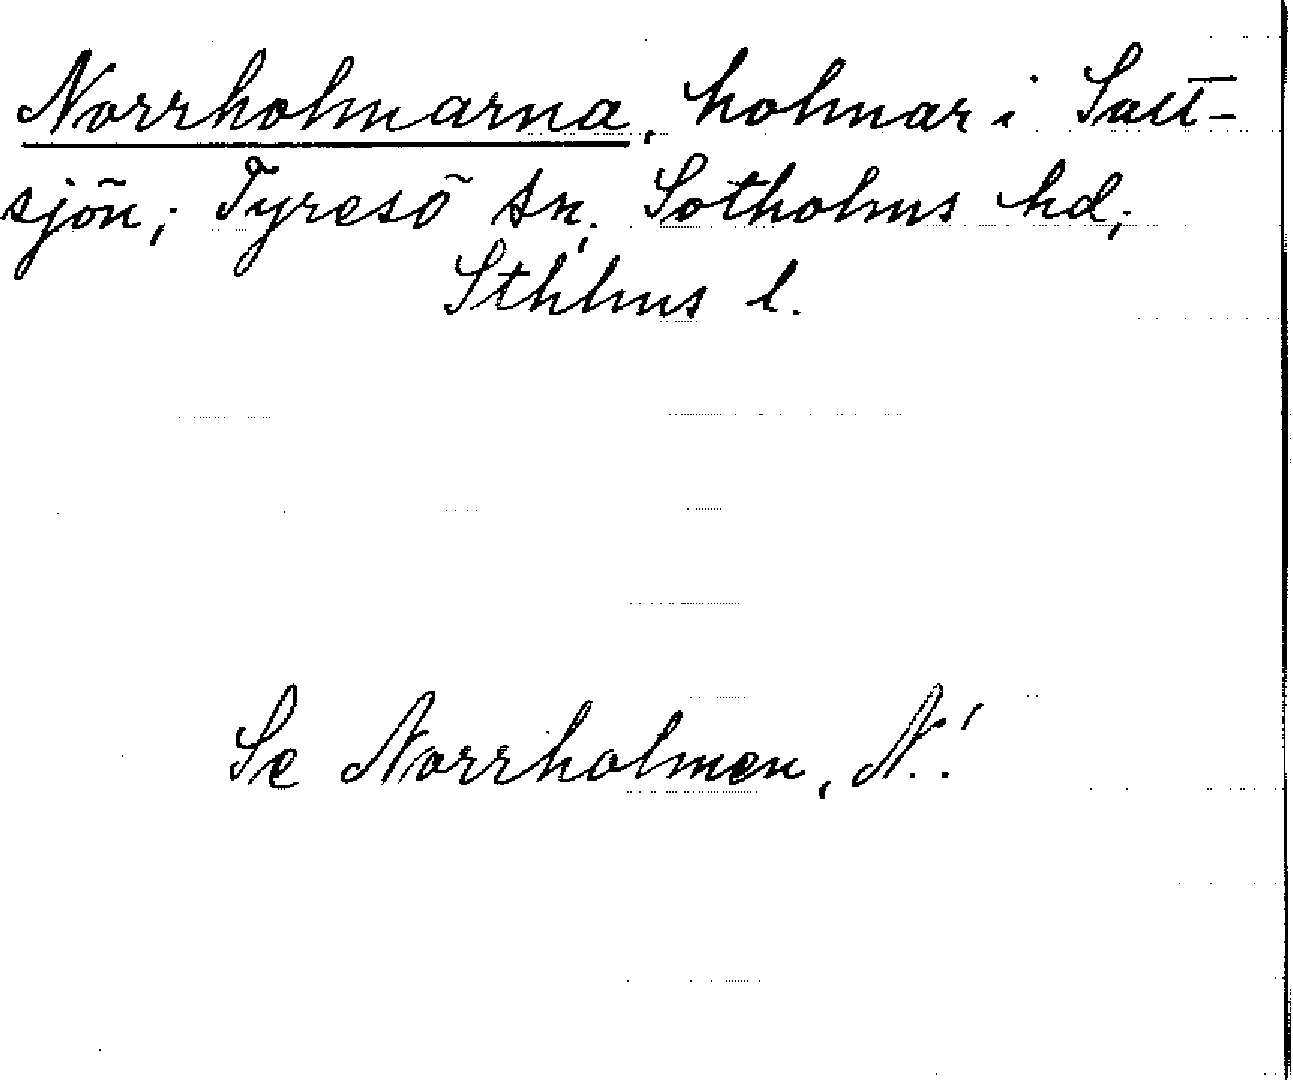 Norrholmarna, holmar i Salt-
sjön, Tyresö sn, Sotholms hd,
Sthlms l.
Se Norrholmen, N.!